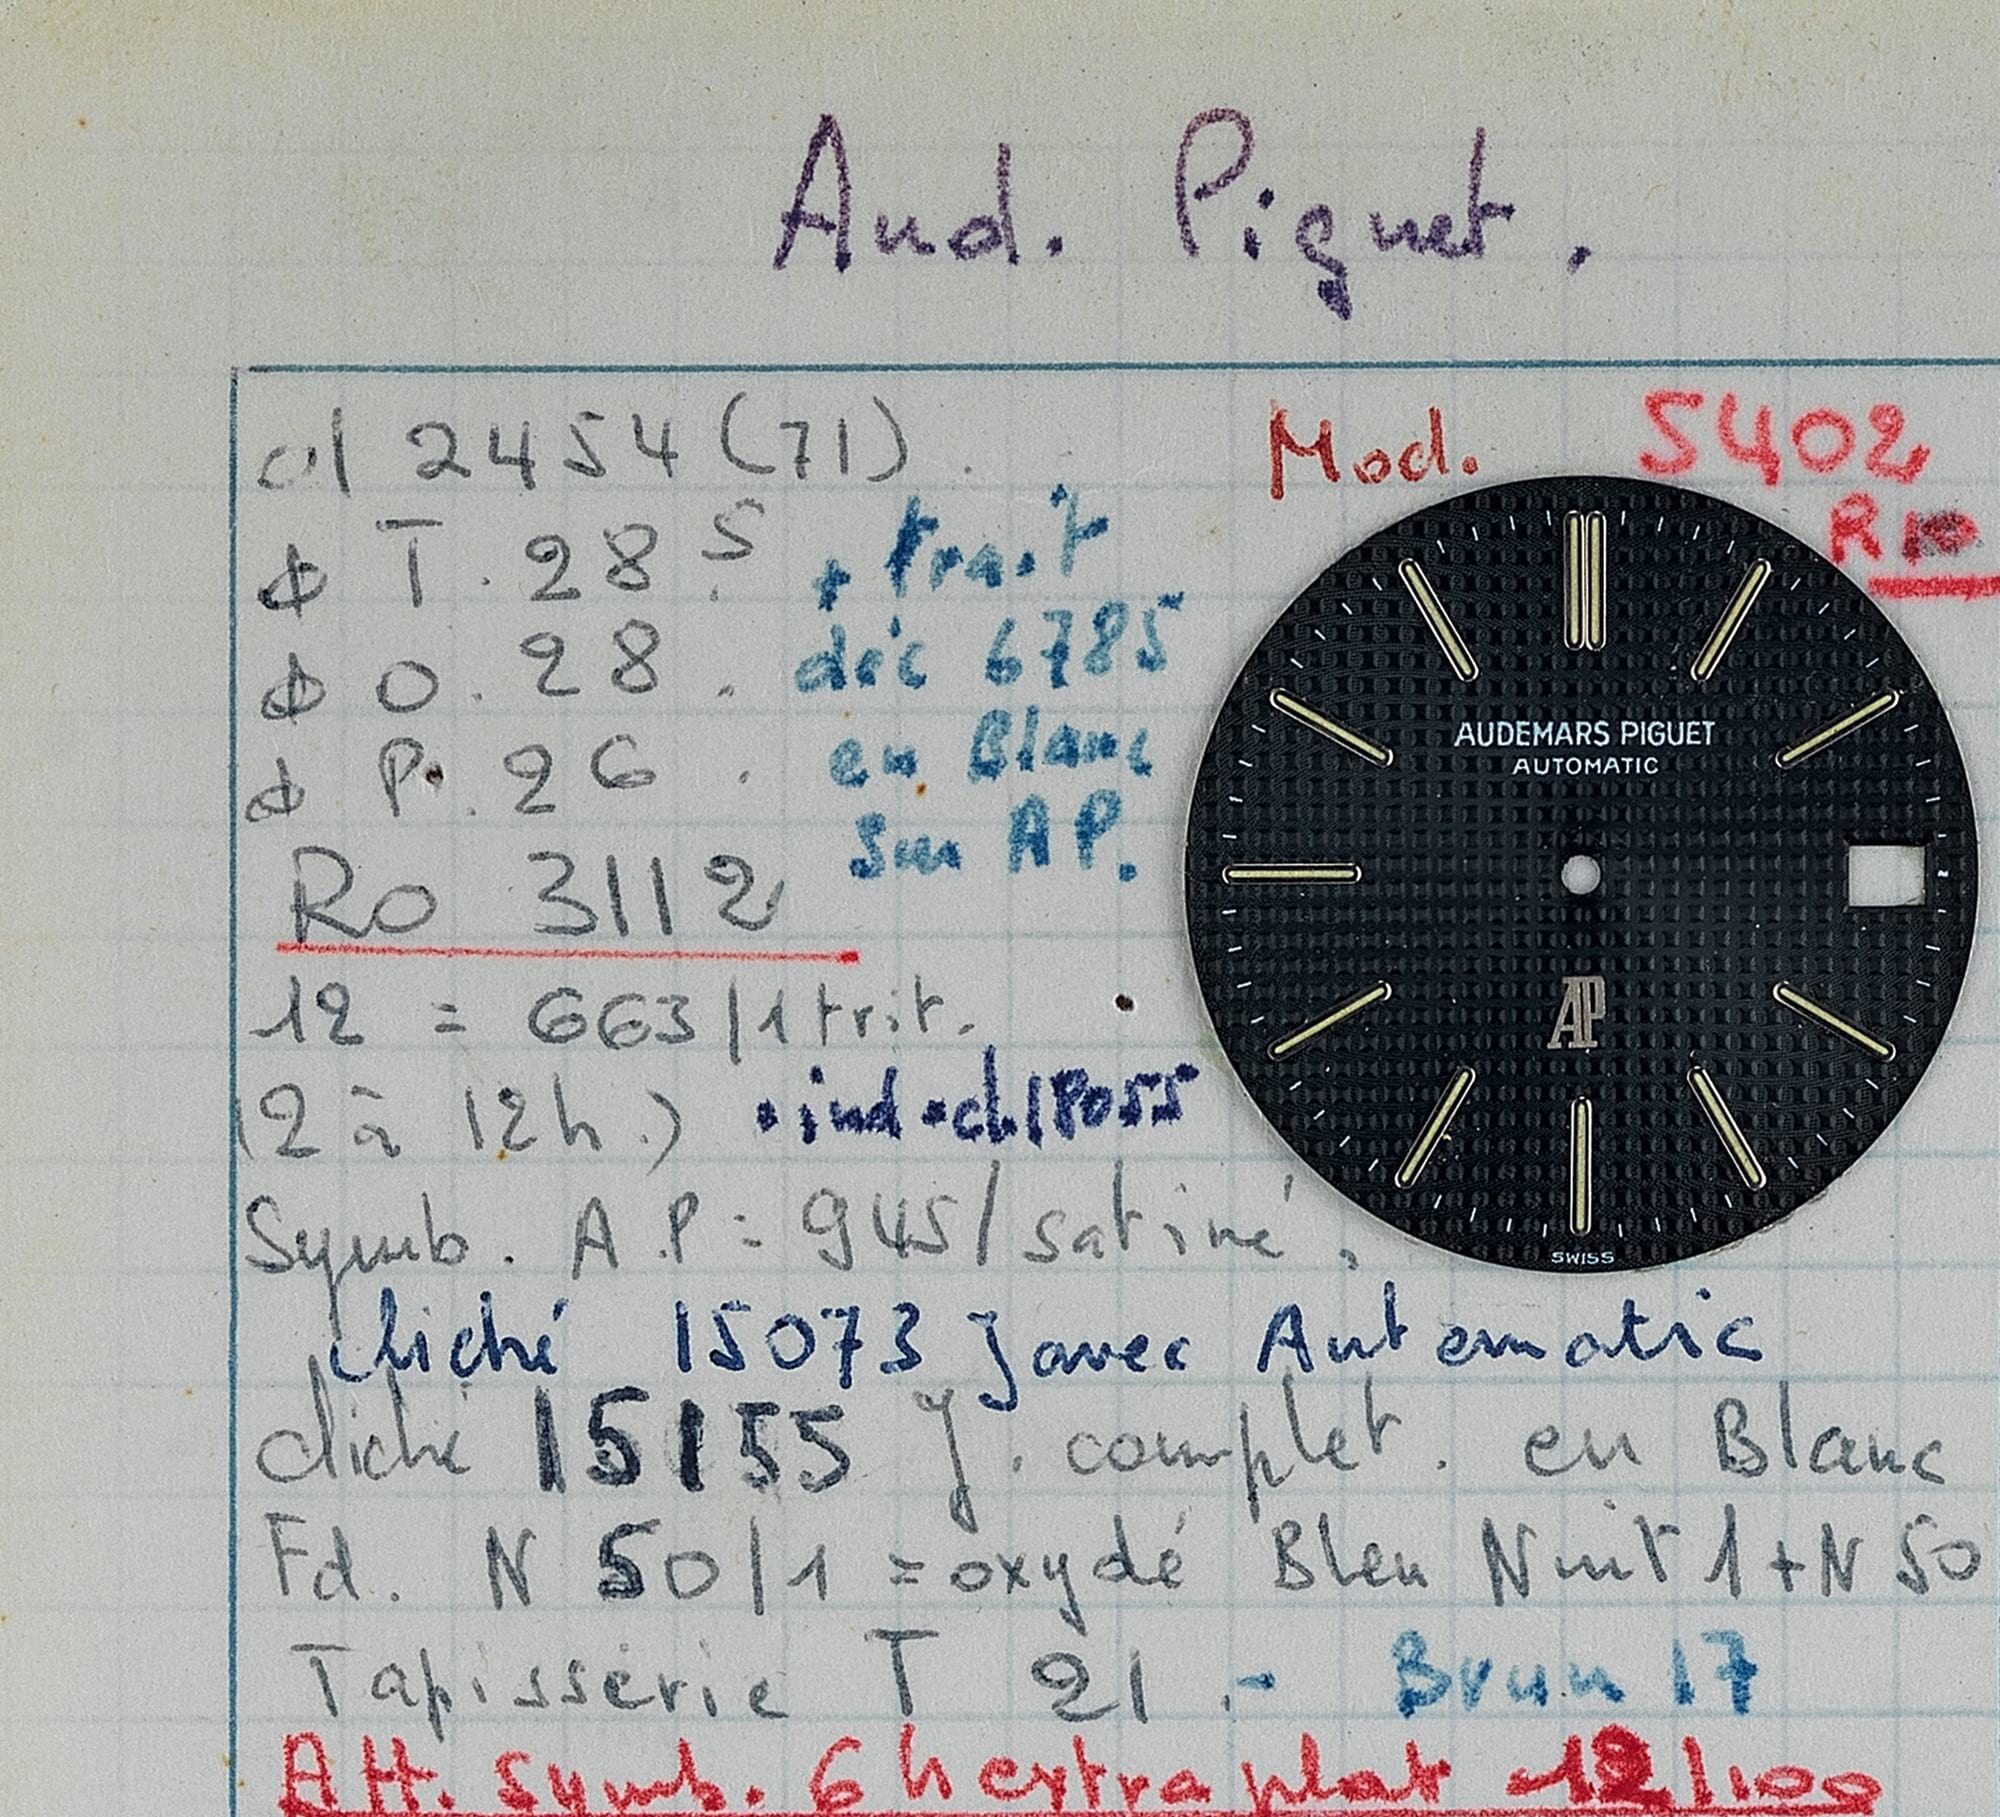 Aud. Piguet.
cl 2454 (71).
Mod. 5402
R
ϕ T. 28 5
+ trait
ϕ O. 28.
déc 6785
ϕ P. 26.
en Blanc
sur AP.
Ro 3112
12 = 663/1 trit.
(2 à 12h.)
ind. ch 18055
Symb. AP: 945/satiné.
cliché 15073 J avec Automatic
cliché 15155 J. complet. en Blanc
Fd. N 50/1 = oxydé Bleu Nuit 1 + N 50
Tapisserie T 21.- Brun 17
Att. Symb. 6h extra plat 12/100
AUDEMARS PIGUET
AUTOMATIC
AP
SWISS